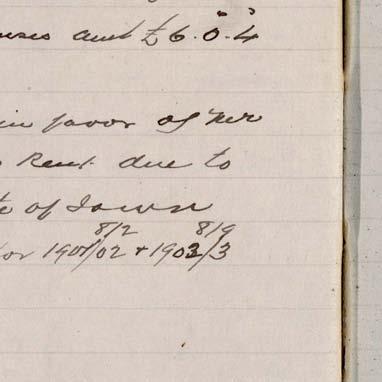 amt £6.0.4
in favor of Mr
Rent due to
of Town
for 1901/02 + 1902/3
8/2 8/9